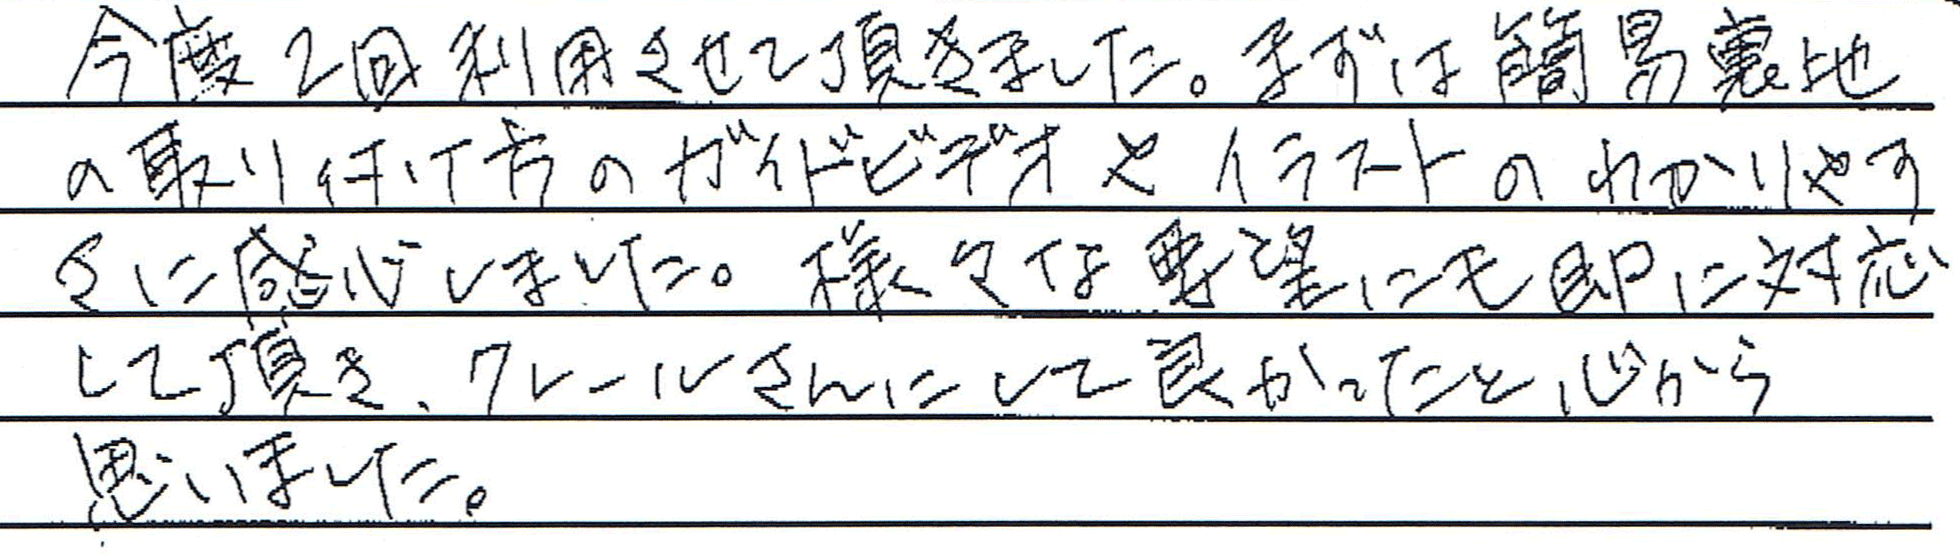 今度2回利用させて頂きました。まずは簡易裏地
の取り付け方のガイドビデオやイラストのわかりやす
さに感心しました。様々な要望にも即に対応
して頂き、クレールさんにして良かったと心から
思いました。